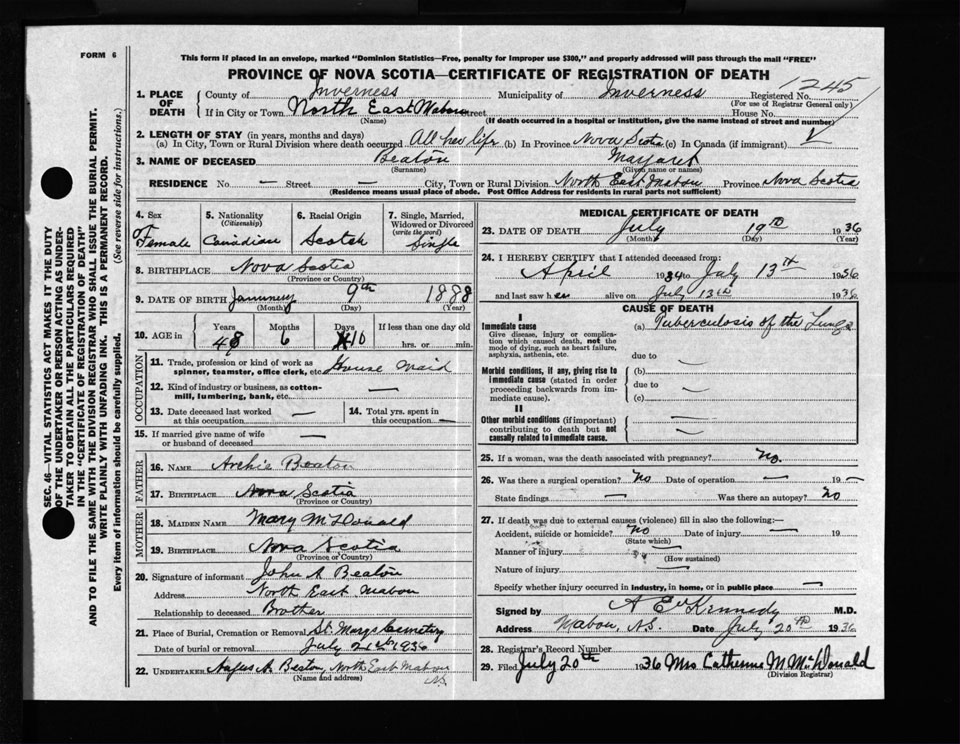 FORM 6
This form if placed in an envelope, marked "Dominion Statistics—Free, penalty for improper use $300," and properly addressed will pass through the mail "FREE"
PROVINCE OF NOVA SCOTIA—CERTIFICATE OF REGISTRATION OF DEATH
SEC. 46—VITAL STATISTICS ACT MAKES IT THE DUTY
OF THE UNDERTAKER OR PERSON ACTING AS UNDER-
TAKER TO OBTAIN ALL THE PARTICULARS REQUIRED
IN THE "CERTIFICATE OF REGISTRATION OF DEATH"
AND TO FILE THE SAME WITH THE DIVISION REGISTRAR WHO SHALL ISSUE THE BURIAL PERMIT.
WRITE PLAINLY WITH UNFADING INK. THIS IS A PERMANENT RECORD.
Every item of information should be carefully supplied. (See reverse side for instructions.)
1. PLACE OF DEATH County of Inverness Municipality of Inverness Registered No. 1245
(For use of Registrar General only)
If in City or Town North East Mabou Street House No.
(Name) (If death occurred in a hospital or institution, give the name instead of street and number)
2. LENGTH OF STAY (in years, months and days)
(a) In City, Town or Rural Division where death occurred All her life (b) In Province Nova Scotia (c) In Canada (if immigrant)
3. NAME OF DECEASED Beaton Margaret
(Surname) (Given name or names)
RESIDENCE No. — Street — City, Town or Rural Division North East Mabou Province Nova Scotia
(Residence means usual place of abode. Post Office Address for residents in rural parts not sufficient)
4. Sex Female
5. Nationality (Citizenship) Canadian
6. Racial Origin Scotch
7. Single, Married, Widowed or Divorced (write the word) Single
8. BIRTHPLACE Nova Scotia
(Province or Country)
9. DATE OF BIRTH January 9th 1888
(Month) (Day) (Year)
10. AGE in Years 48 Months 6 Days 10 If less than one day old
hrs. or min.
OCCUPATION
11. Trade, profession or kind of work as
spinner, teamster, office clerk, etc. House Maid
12. Kind of industry or business, as cotton-
mill, lumbering, bank, etc. —
13. Date deceased last worked at this occupation —
14. Total yrs. spent in this occupation —
15. If married give name of wife
or husband of deceased —
FATHER
16. NAME Archie Beaton
17. BIRTHPLACE Nova Scotia
(Province or Country)
MOTHER
18. MAIDEN NAME Mary McDonald
19. BIRTHPLACE Nova Scotia
(Province or Country)
20. Signature of informant John A Beaton
Address North East Mabou
Relationship to deceased Brother
21. Place of Burial, Cremation or Removal St. Marys Cemetery
Date of burial or removal July 1936
22. UNDERTAKER Angus A. Beaton, North East Mabou
(Name and address)
N.S.
MEDICAL CERTIFICATE OF DEATH
23. DATE OF DEATH July 19th 1936
(Month) (Day) (Year)
24. I HEREBY CERTIFY that I attended deceased from:
April 1934 to July 13th 1936
and last saw her alive on July 13th 1936
CAUSE OF DEATH
I
Immediate cause
Give disease, injury or complica-
tion which caused death, not the
mode of dying, such as heart failure,
asphyxia, asthenia, etc.
(a) Tuberculosis of the Lungs
due to
Morbid conditions, if any, giving rise to
immediate cause (stated in order
proceeding backwards from im-
mediate cause).
(b)
due to
(c)
II
Other morbid conditions (if important)
contributing to death but not
causally related to immediate cause.
25. If a woman, was the death associated with pregnancy? No.
26. Was there a surgical operation? No Date of operation — 19 —
State findings — Was there an autopsy? No
27. If death was due to external causes (violence) fill in also the following:—
Accident, suicide or homicide? No Date of injury — 19
(State which)
Manner of injury
(How sustained)
Nature of injury —
Specify whether injury occurred in industry, in home, or in public place —
Signed by A Kennedy M.D.
Address Mabou, N.S. Date July 20th 1936
28. Registrar's Record Number
29. Filed July 20th 1936 Mrs Catherine M McDonald
(Division Registrar)